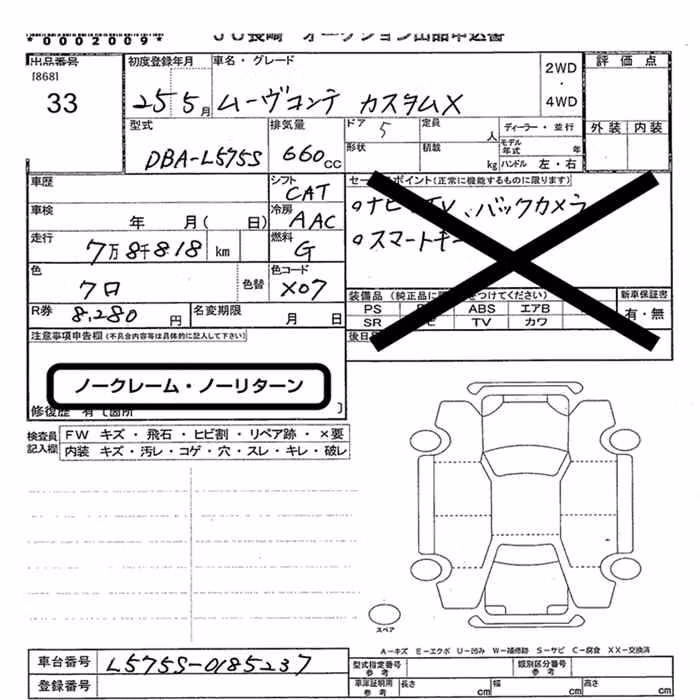 *0002009*
JU長崎 オークション出品申込書
出品番号
[868]
33
初度登録年月
25 5月
車名・グレード
ムーヴコンテ カスタムX
2WD
・
4WD
評価点
外装 内装
型式
DBA-L575S
排気量
660cc
ドア
5
定員
人
形状
積載
kg
ディーラー・並行
モデル年式 年
ハンドル 左・右
車歴
シフト
CAT
車検
年 月( 日)
冷房
AAC
走行
7万8千818 km
燃料
G
色
クロ
色替
色コード
X07
R券
8,280円
名変期限
月 日
セールスポイント(正常に機能するものに限ります)
バックカメラ
新車保証書
有・無
PS
ABS エアB
SR
TV カワ
注意事項申告欄(不具合内容等は具体的に記入して下さい)
ノークレーム・ノーリターン
検査員記入欄
FW キズ・飛石・ヒビ割・リペア跡・×要
内装 キズ・汚レ・コゲ・穴・スレ・キレ・破レ
スペア
A-キズ E-エクボ U-凹み W-補修跡 S-サビ C-腐食 XX-交換済
車台番号
L575S-0185237
登録番号
型式指定番号 参考
類別区分番号 参考
車庫証明用 参考
長さ cm
幅 cm
高さ cm